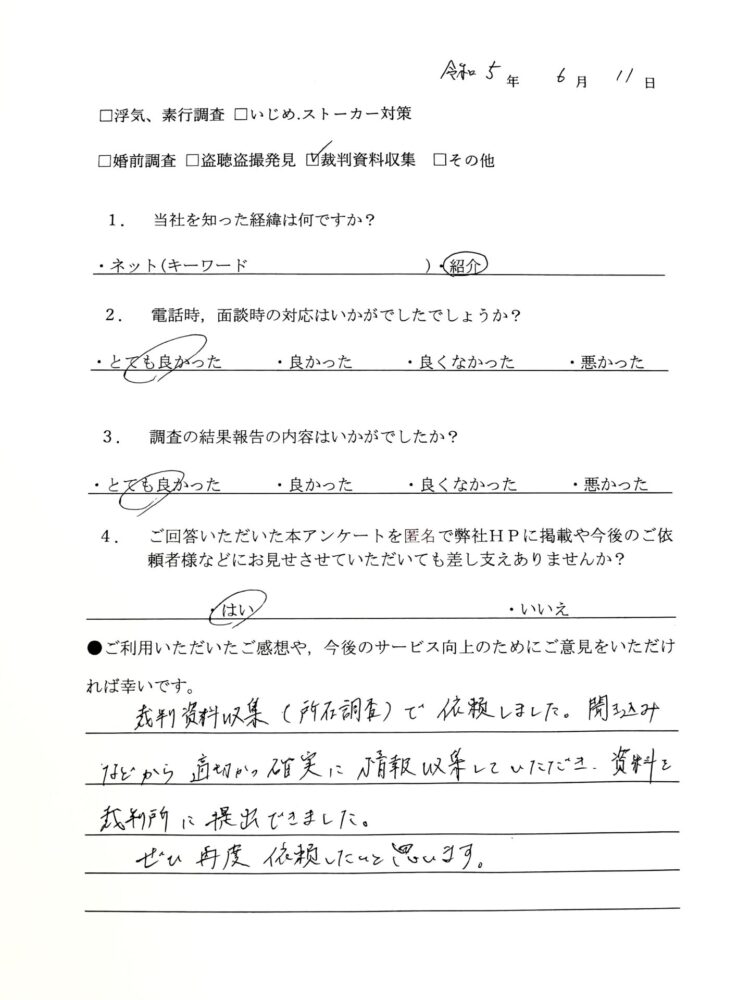 令和 5 年 6 月 11 日
□浮気、素行調査 □いじめ.ストーカー対策
□婚前調査 □盗聴盗撮発見 ☑裁判資料収集 □その他
１． 当社を知った経緯は何ですか？
・ネット(キーワード )・紹介
２． 電話時，面談時の対応はいかがでしたでしょうか？
・とても良かった ・良かった ・良くなかった ・悪かった
３． 調査の結果報告の内容はいかがでしたか？
・とても良かった ・良かった ・良くなかった ・悪かった
４． ご回答いただいた本アンケートを匿名で弊社ＨＰに掲載や今後のご依
頼者様などにお見せさせていただいても差し支えありませんか？
・はい ・いいえ
●ご利用いただいたご感想や，今後のサービス向上のためにご意見をいただけ
れば幸いです。
裁判資料収集（所在調査）で 依頼しました。聞き込み
などから 適切かつ確実に 情報収集していただき、資料を
裁判所に提出できました。
ぜひ 再度 依頼したいと思います。